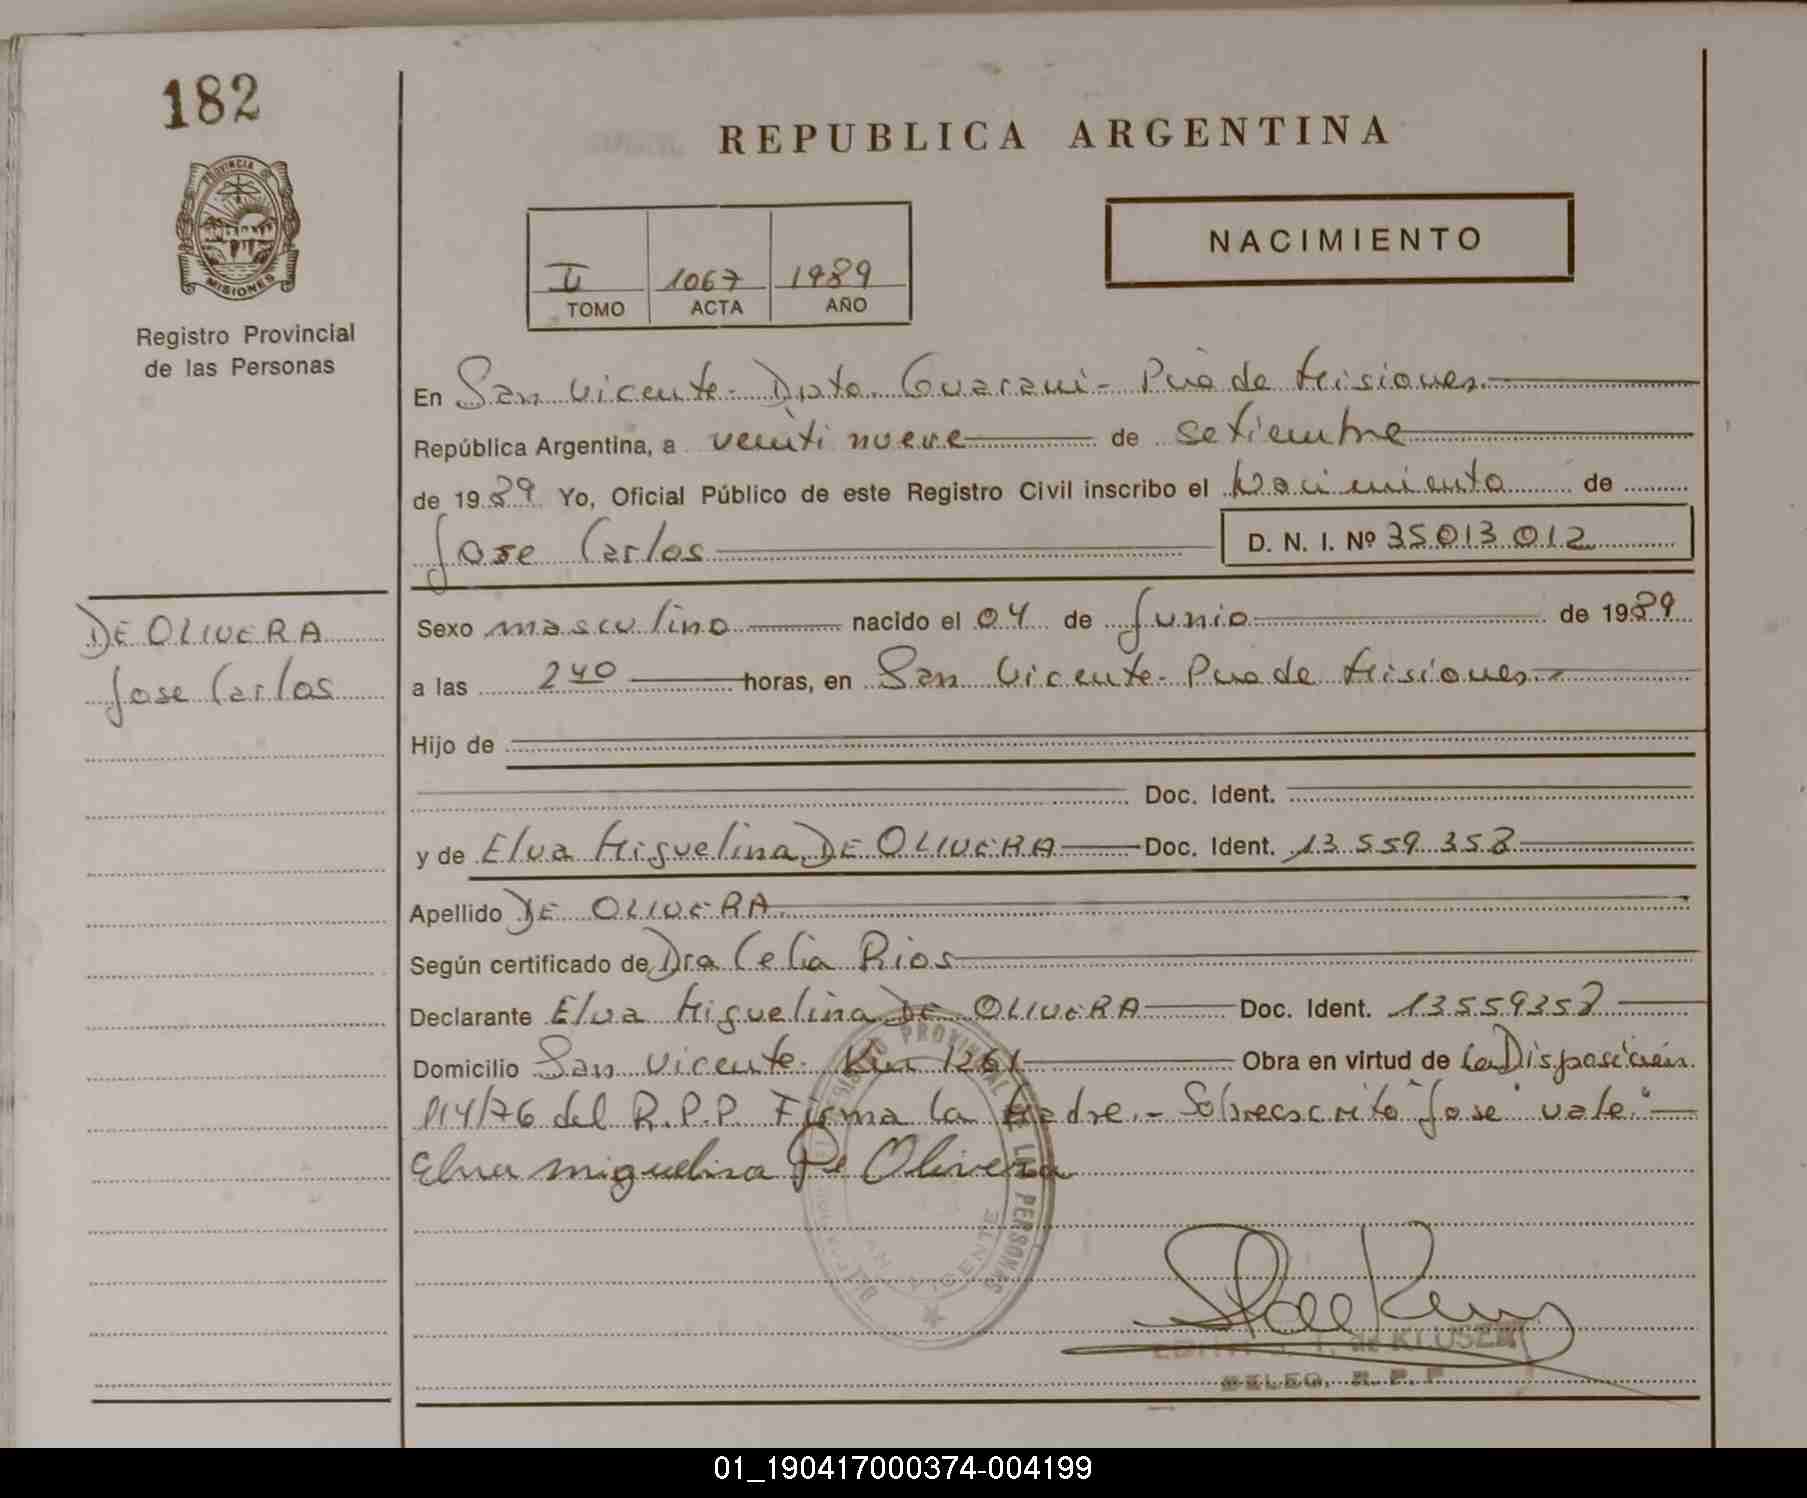 182
PROVINCIA DE
MISIONES
Registro Provincial
de las Personas
DE OLIVERA
Jose Carlos
REPUBLICA ARGENTINA
II 1067 1989
TOMO ACTA AÑO
NACIMIENTO
En San Vicente - Dpto. Guarani - Pcia de Misiones.
República Argentina, a veinti nueve de setiembre
de 1989 Yo, Oficial Público de este Registro Civil inscribo el Nacimiento de
Jose Carlos D. N. I. Nº 35013012
Sexo masculino nacido el 04 de Junio de 1989
a las 240 horas, en San Vicente - Pcia de Misiones
Hijo de
Doc. Ident.
y de Elva Miguelina DE OLIVERA Doc. Ident. 13.559.358
Apellido DE OLIVERA
Según certificado de Dra Celia Rios
Declarante Elva Miguelina DE OLIVERA Doc. Ident. 13559358
Domicilio San Vicente - Km 1261 Obra en virtud de la Disposición
114/76 del R.P.P. Firma la Madre.- Sobreescrito "Jose" vale"
Elva Miguelina De Olivera
REGISTRO PROVINCIAL DE LAS PERSONAS
SAN VICENTE
de KLUSER
DELEG. R. P. P.
01_190417000374-004199